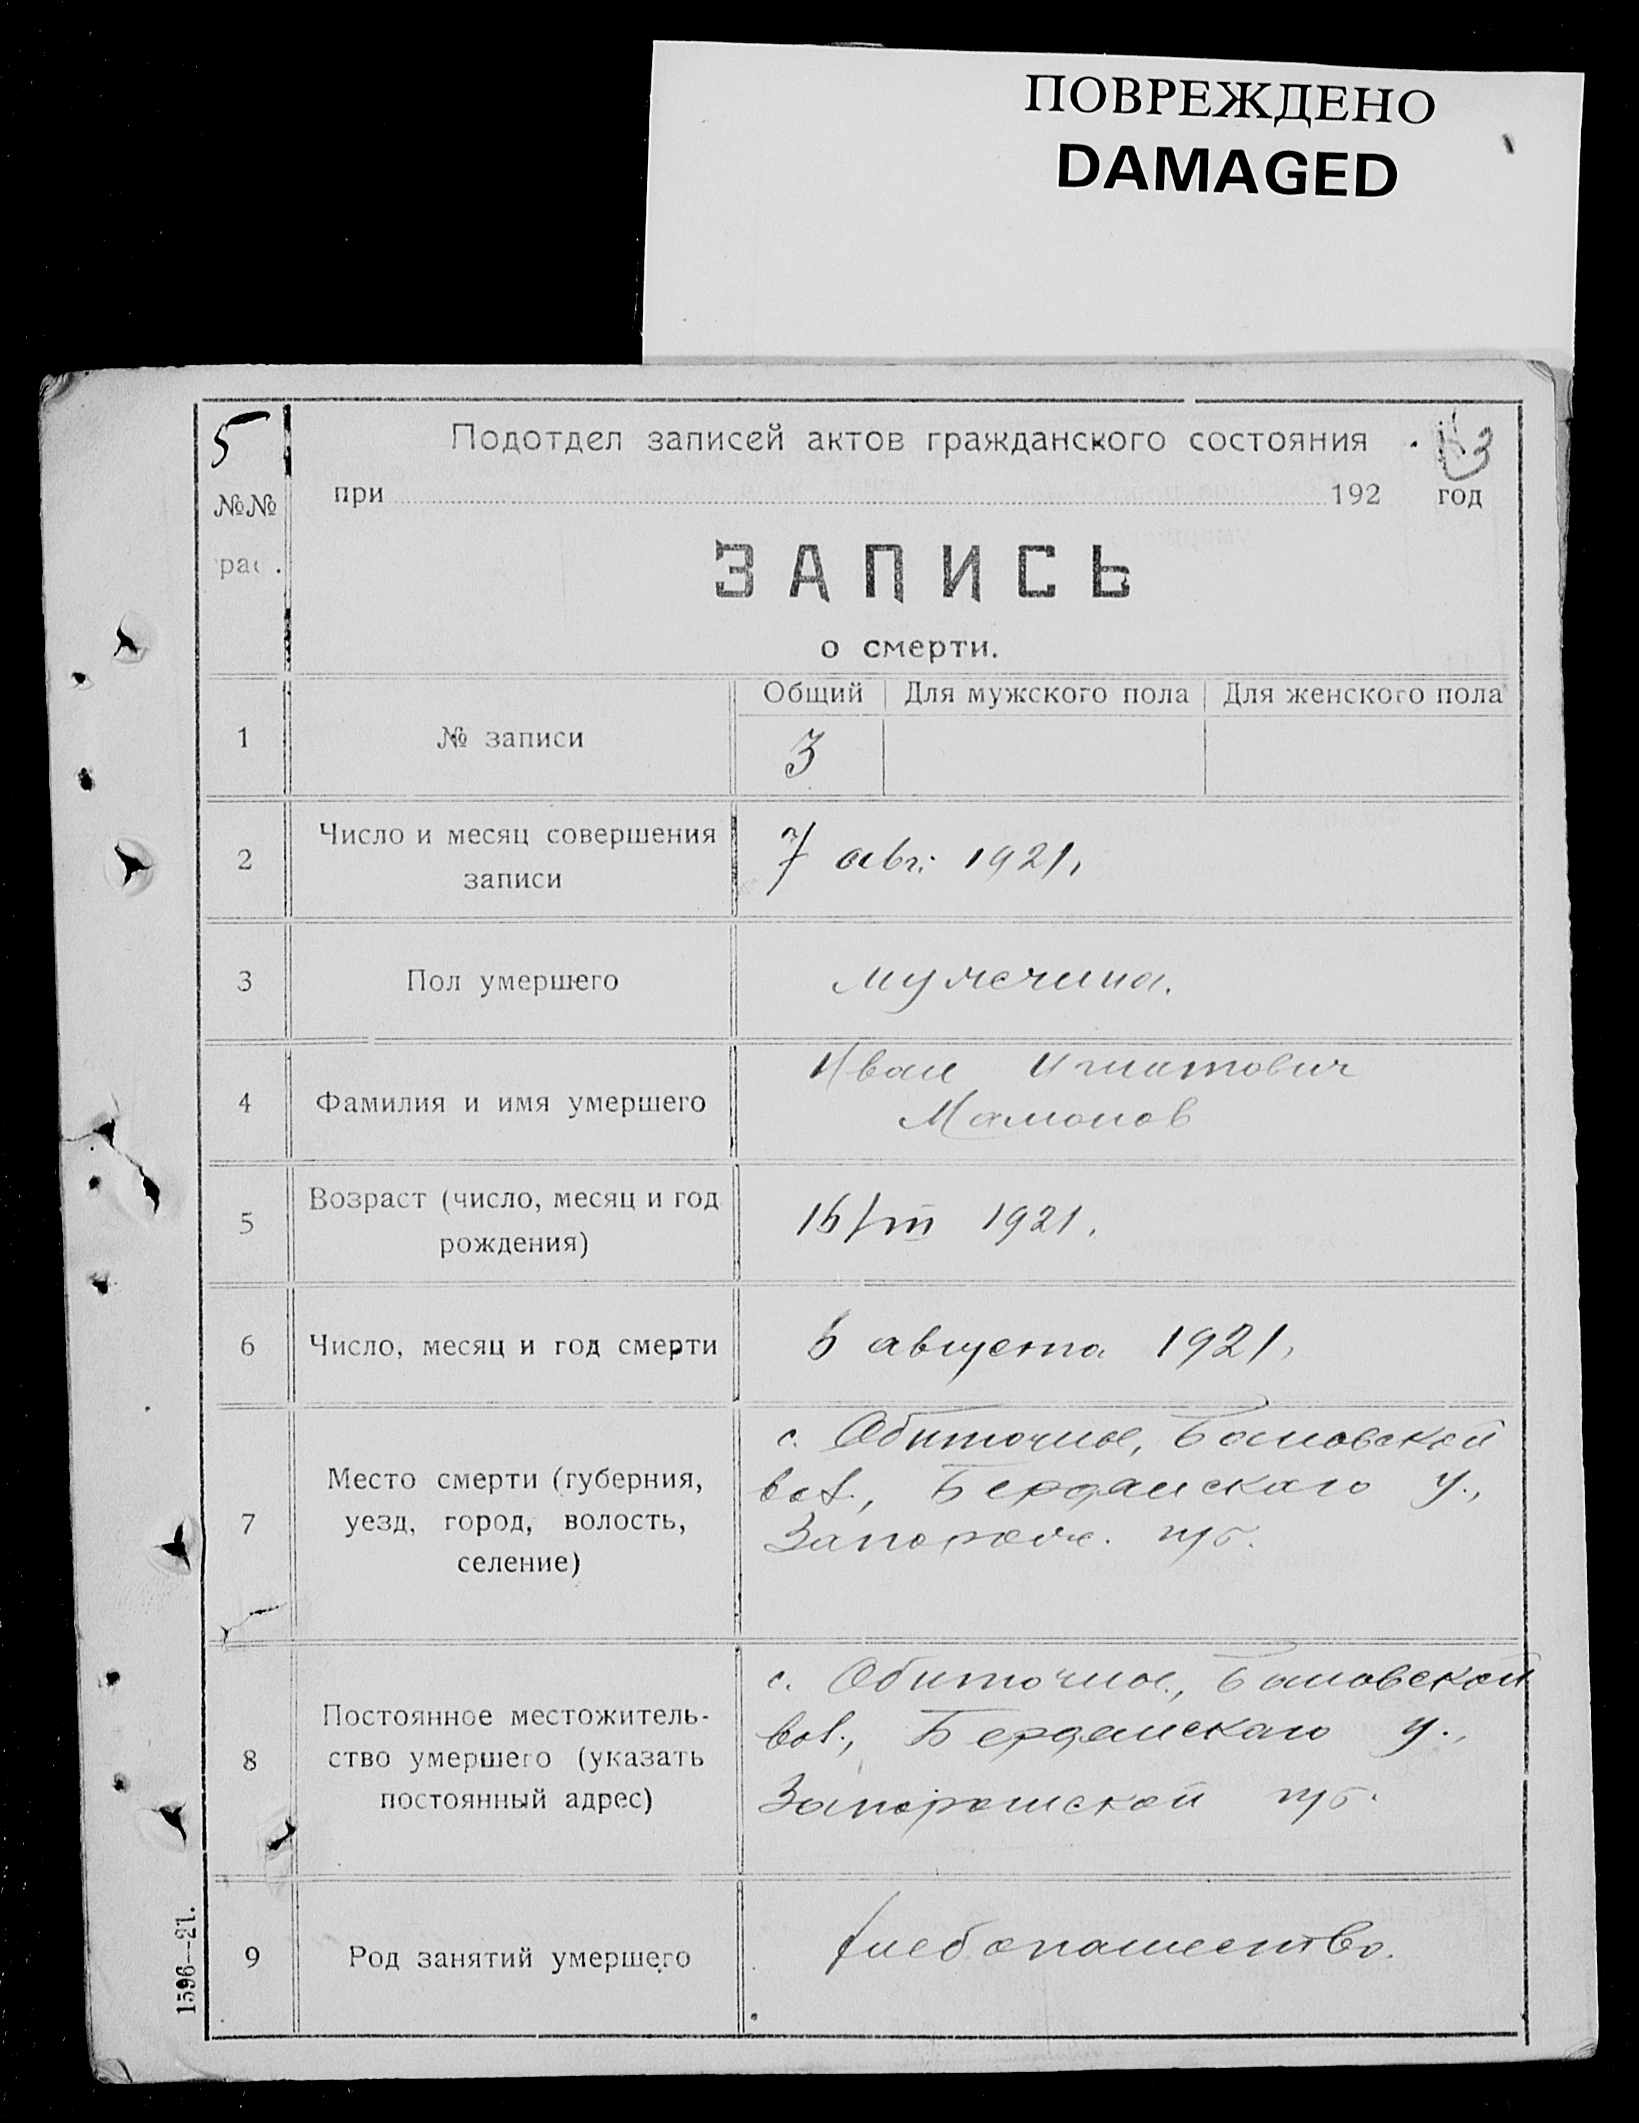 ПОВРЕЖДЕНО
DAMAGED
5
Подотдел записей актов гражданского состояния
№№ при 192 год
ЗАПИСЬ
о смерти.
Общий Для мужского пола Для женского пола
1 № записи 3
2 Число и месяц совершения
записи
7 авг. 1921,
3 Пол умершего мужчина.
4 Фамилия и имя умершего
Иван Игнатович
Мамонов
5 Возраст (число, месяц и год
рождения)
16/III 1921.
6 Число, месяц и год смерти 6 августа 1921,
7 Место смерти (губерния,
уезд, город, волость,
селение)
с. Обиточное,
вол., Бердянскаго у.,
Запорож. губ.
8 Постоянное местожитель-
ство умершего (указать
постоянный адрес)
с. Обиточное,
вол., Бердянскаго у.,
губ.
9 Род занятий умершего хлебопашество.
1596—21.